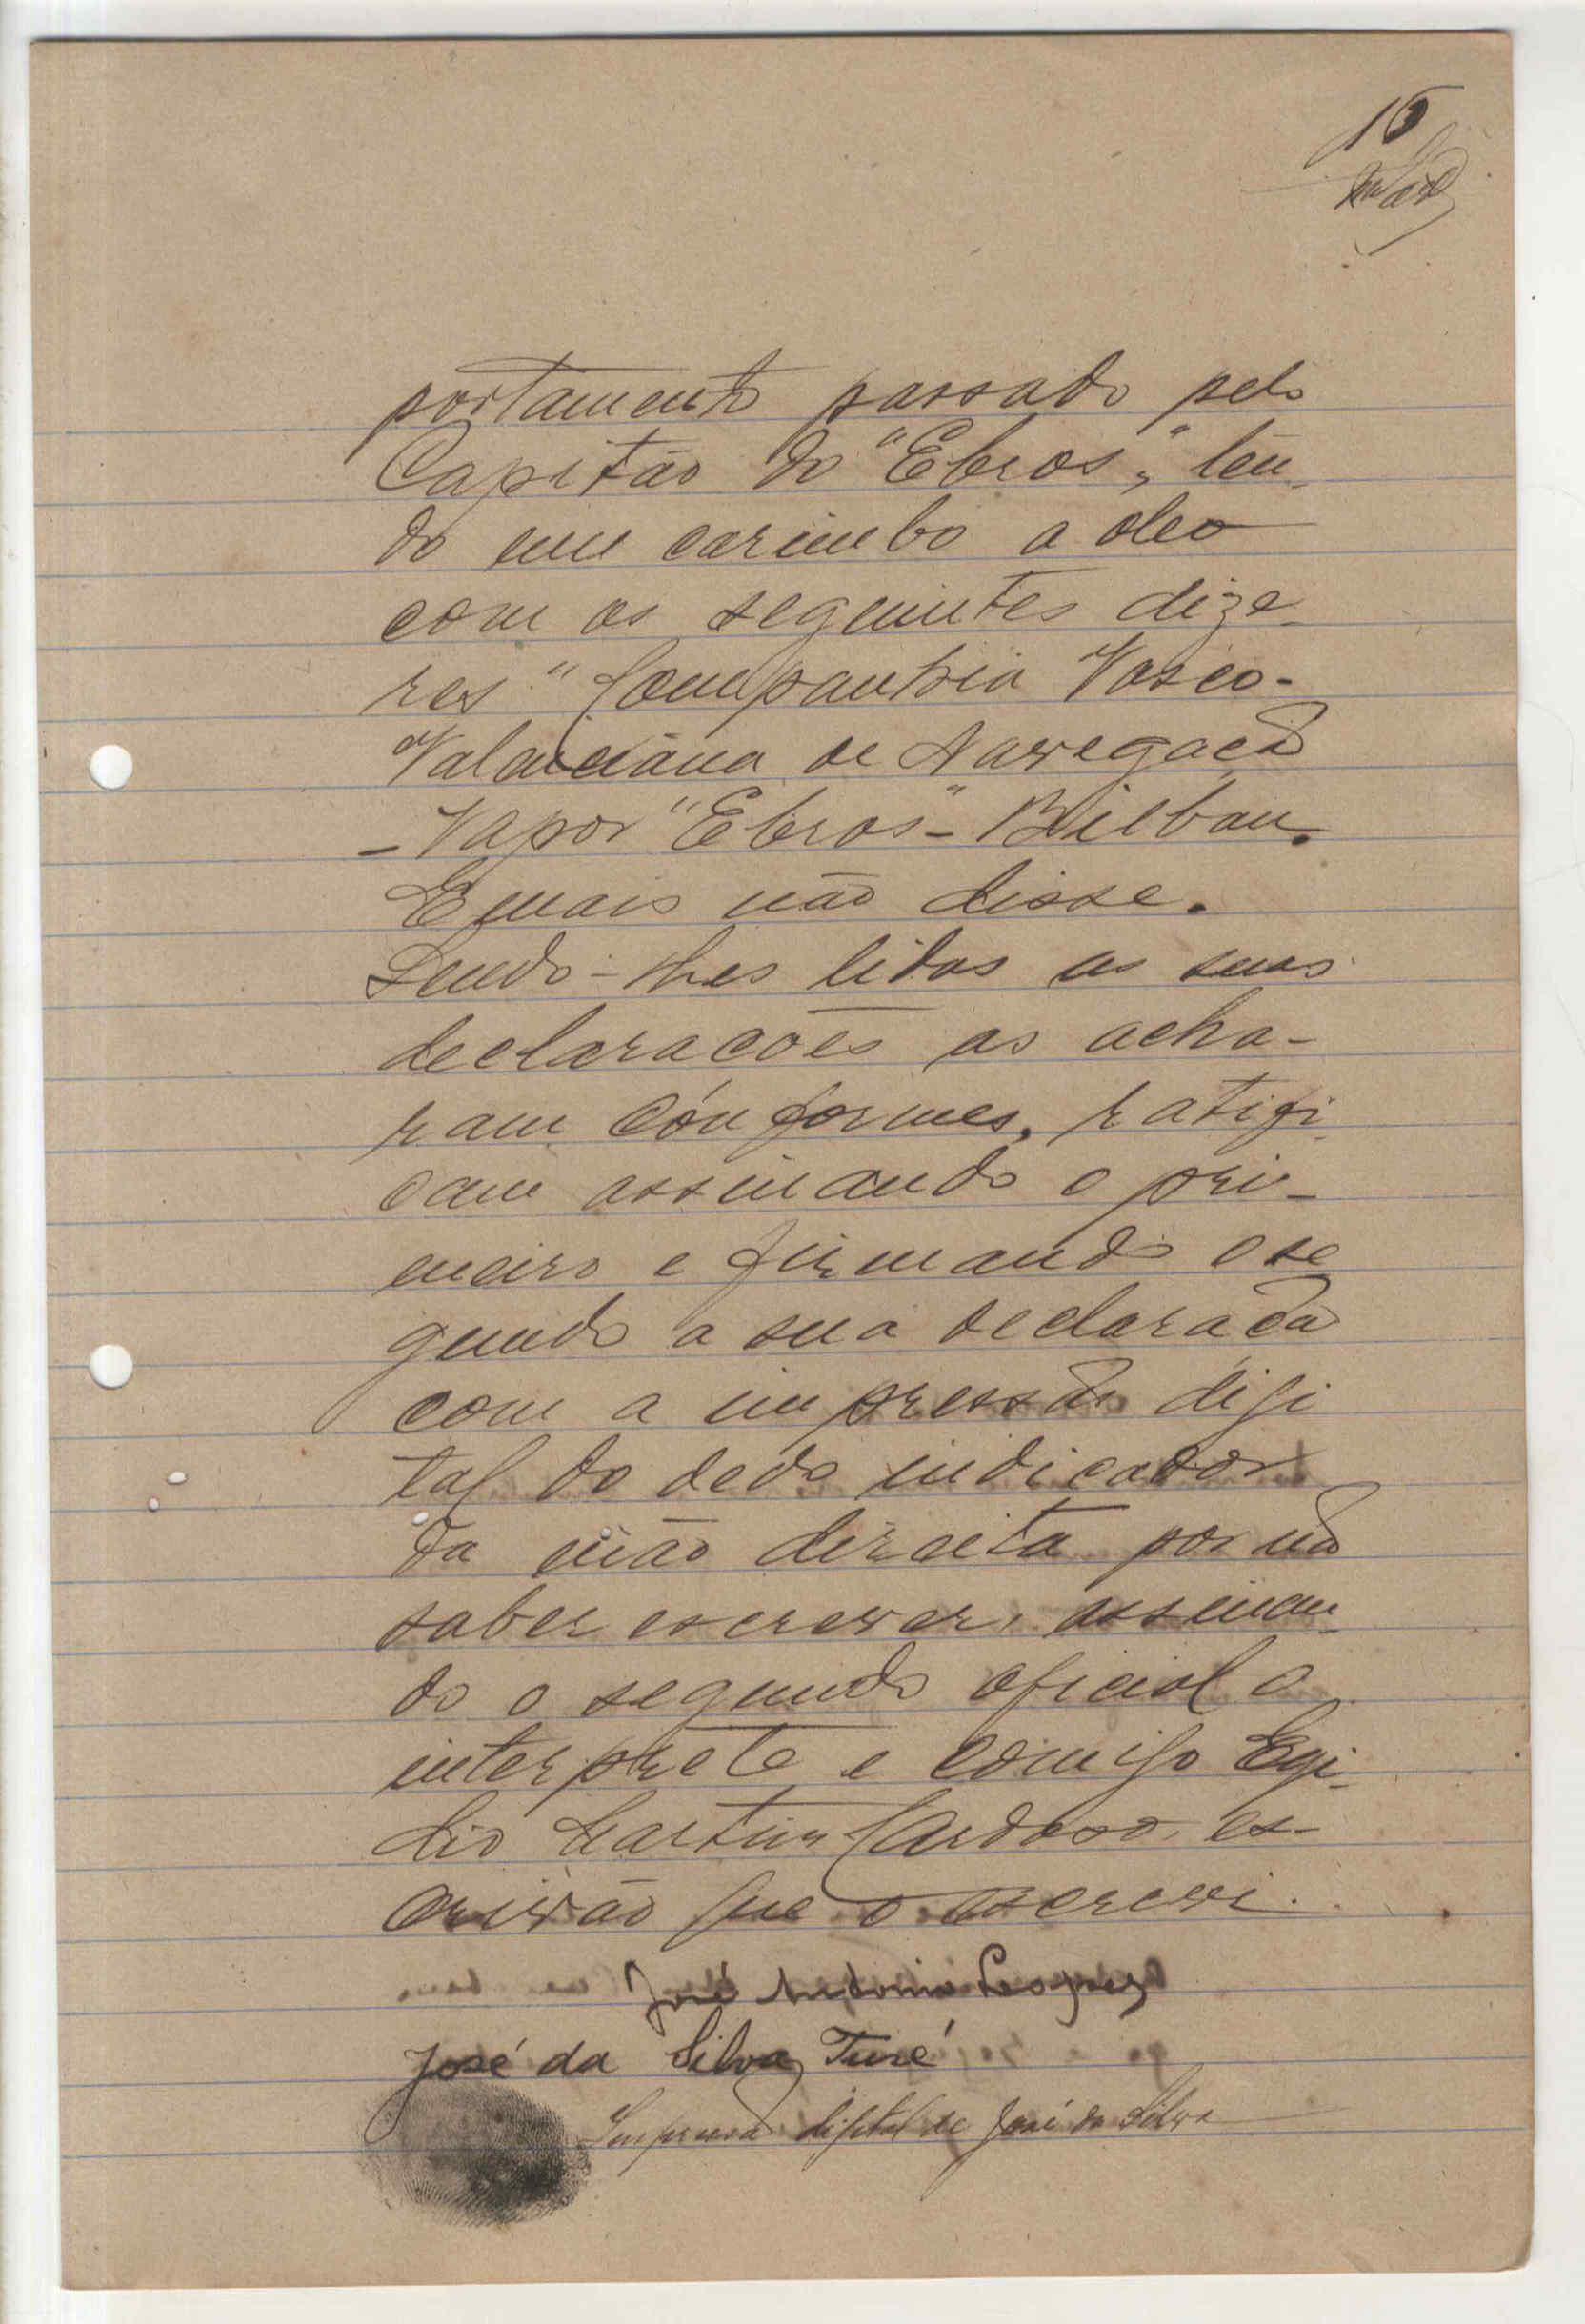 15
portamento passado pelo
Capitão do "Ebros", ten-
do um carimbo a oleo
com os seguintes dize-
res "Companhia Vasco-
Valanciana de Navegação
- Vapor "Ebros" - Bilbau.
E mais não disse.
Sendo-lhes lidas as suas
declaracões as acha-
ram conformes, ratifi-
cam assinando o pri-
meiro e firmando o se
gundo a sua declaração
com a impressão digi
tal do dedo indicador
da mão direita por não
saber escrever, assinan-
do o segundo oficial o
interprete e comigo Egi-
dio Martins Cardoso, es-
crivão que o escrevi.
José Antonio Leopez
José da Silva Turé
Impressão digital de José da Silva